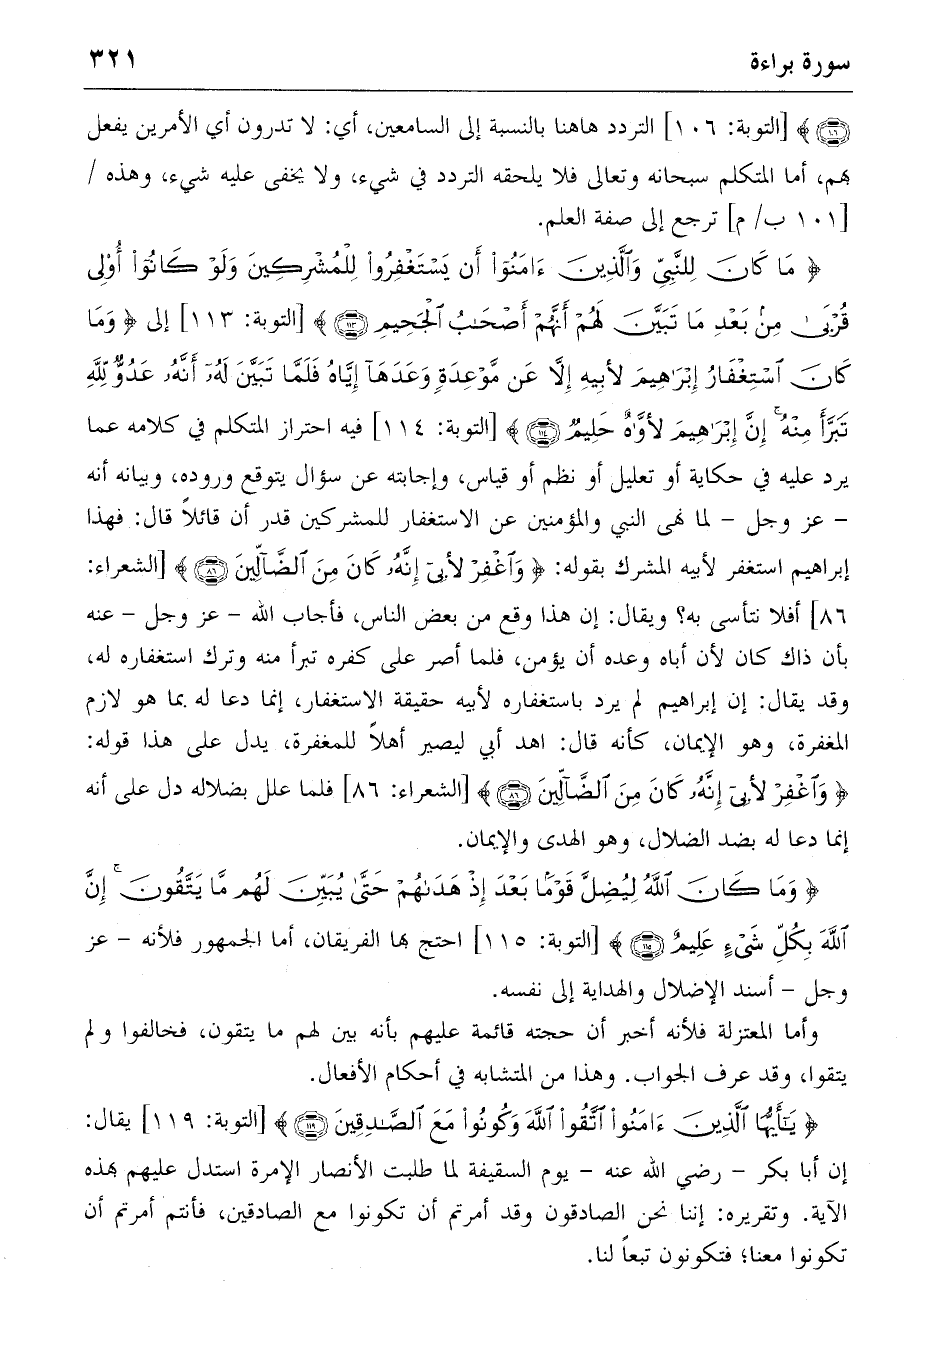 سورة براءة ٣٢١
(١٠٦) ﴾ [التوبة: ١٠٦] التردد هاهنا بالنسبة إلى السامعين، أي: لا تدرون أي الأمرين يفعل
بهم، أما المتكلم سبحانه وتعالى فلا يلحقه التردد في شيء، ولا يخفى عليه شيء، وهذه /
[١٠١ ب/ م] ترجع إلى صفة العلم.
﴿ مَا كَانَ لِلنَّبِيِّ وَٱلَّذِينَ ءَامَنُوٓاْ أَن يَسْتَغْفِرُواْ لِلْمُشْرِكِينَ وَلَوْ كَانُوٓاْ أُوْلِى
قُرْبَىٰ مِنۢ بَعْدِ مَا تَبَيَّنَ لَهُمْ أَنَّهُمْ أَصْحَٰبُ ٱلْجَحِيمِ (١١٣) ﴾ [التوبة: ١١٣] إلى ﴿ وَمَا
كَانَ ٱسْتِغْفَارُ إِبْرَٰهِيمَ لِأَبِيهِ إِلَّا عَن مَّوْعِدَةٍ وَعَدَهَآ إِيَّاهُ فَلَمَّا تَبَيَّنَ لَهُۥٓ أَنَّهُۥ عَدُوٌّ لِّلَّهِ
تَبَرَّأَ مِنْهُ ۚ إِنَّ إِبْرَٰهِيمَ لَأَوَّٰهٌ حَلِيمٌ (١١٤) ﴾ [التوبة: ١١٤] فيه احتراز المتكلم في كلامه عما
يرد عليه في حكاية أو تعليل أو نظم أو قياس، وإجابته عن سؤال يتوقع وروده، وبيانه أنه
– عز وجل – لما نهى النبي والمؤمنين عن الاستغفار للمشركين قدر أن قائلاً قال: فهذا
إبراهيم استغفر لأبيه المشرك بقوله: ﴿ وَٱغْفِرْ لِأَبِىٓ إِنَّهُۥ كَانَ مِنَ ٱلضَّآلِّينَ (٨٦) ﴾ [الشعراء:
٨٦] أفلا نتأسى به؟ ويقال: إن هذا وقع من بعض الناس، فأجاب الله – عز وجل – عنه
بأن ذاك كان لأن أباه وعده أن يؤمن، فلما أصر على كفره تبرأ منه وترك استغفاره له،
وقد يقال: إن إبراهيم لم يرد باستغفاره لأبيه حقيقة الاستغفار، إنما دعا له بما هو لازم
المغفرة، وهو الإيمان، كأنه قال: اهد أبي ليصير أهلاً للمغفرة، يدل على هذا قوله:
﴿ وَٱغْفِرْ لِأَبِىٓ إِنَّهُۥ كَانَ مِنَ ٱلضَّآلِّينَ (٨٦) ﴾ [الشعراء: ٨٦] فلما علل بضلاله دل على أنه
إنما دعا له بضد الضلال، وهو الهدى والإيمان.
﴿ وَمَا كَانَ ٱللَّهُ لِيُضِلَّ قَوْمًۢا بَعْدَ إِذْ هَدَىٰهُمْ حَتَّىٰ يُبَيِّنَ لَهُم مَّا يَتَّقُونَ ۚ إِنَّ
ٱللَّهَ بِكُلِّ شَىْءٍ عَلِيمٌ (١١٥) ﴾ [التوبة: ١١٥] احتج بها الفريقان، أما الجمهور فلأنه – عز
وجل – أسند الإضلال والهداية إلى نفسه.
وأما المعتزلة فلأنه أخبر أن حجته قائمة عليهم بأنه بين لهم ما يتقون، فخالفوا ولم
يتقوا، وقد عرف الجواب. وهذا من المتشابه في أحكام الأفعال.
﴿ يَٰٓأَيُّهَا ٱلَّذِينَ ءَامَنُواْ ٱتَّقُواْ ٱللَّهَ وَكُونُواْ مَعَ ٱلصَّٰدِقِينَ (١١٩) ﴾ [التوبة: ١١٩] يقال:
إن أبا بكر – رضي الله عنه – يوم السقيفة لما طلبت الأنصار الإمرة استدل عليهم بهذه
الآية. وتقريره: إننا نحن الصادقون وقد أمرتم أن تكونوا مع الصادقين، فأنتم أمرتم أن
تكونوا معنا؛ فتكونون تبعاً لنا.